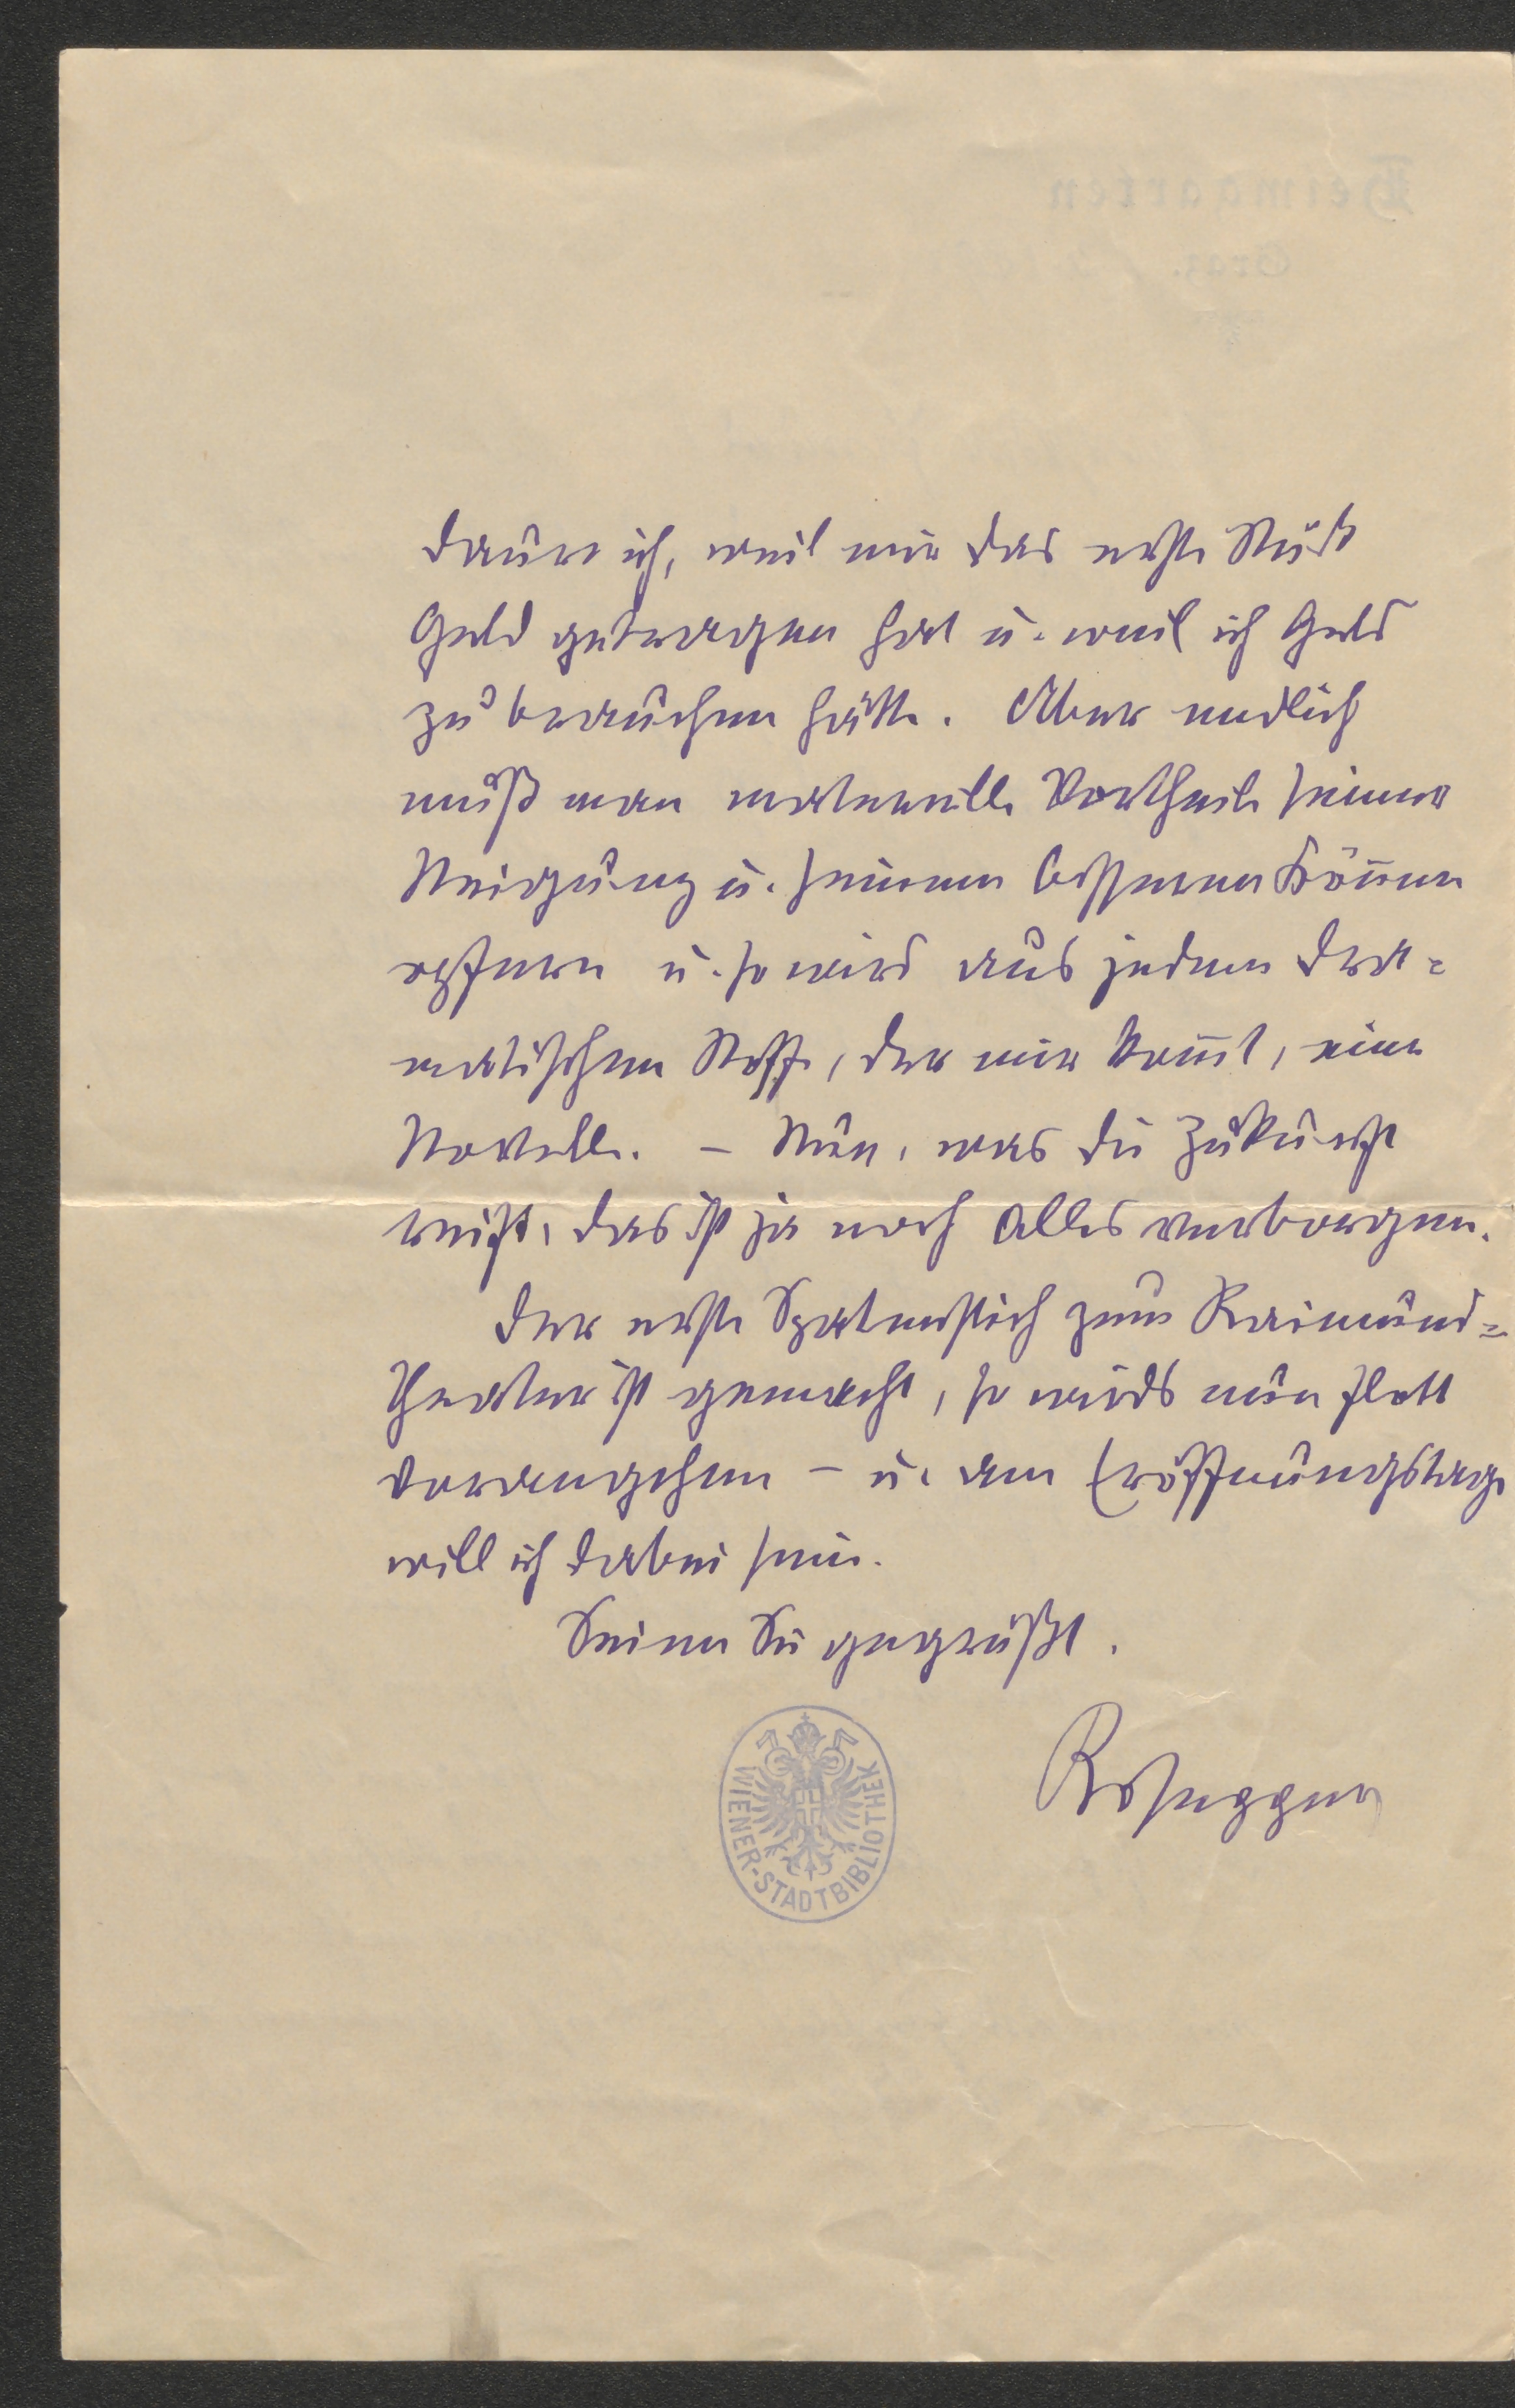 daure ich, weil mir das erste Stück
Geld getragen hat u. weil ich Geld
zu brauchen hätte. Aber endlich
muß man materielle Vortheile seiner
Neigung u. seinem besseren Können
opfern u. so wird aus jedem dra=
matischen Stoffe, der mir kom̅t, eine
Novelle. – Nun, was die Zukunft
weist, das ist ja noch alles verborgen.
Der erste Spatenstich zum Raimund=
Theater ist gemacht, so wirds nun flott
vorangehen – u. am Eröffnungstage
will ich dabei sein.
Seien Sie gegrüßt.
Rosegger
WIENER-STADTBIBLIOTHEK
Heimgarten
Graz.